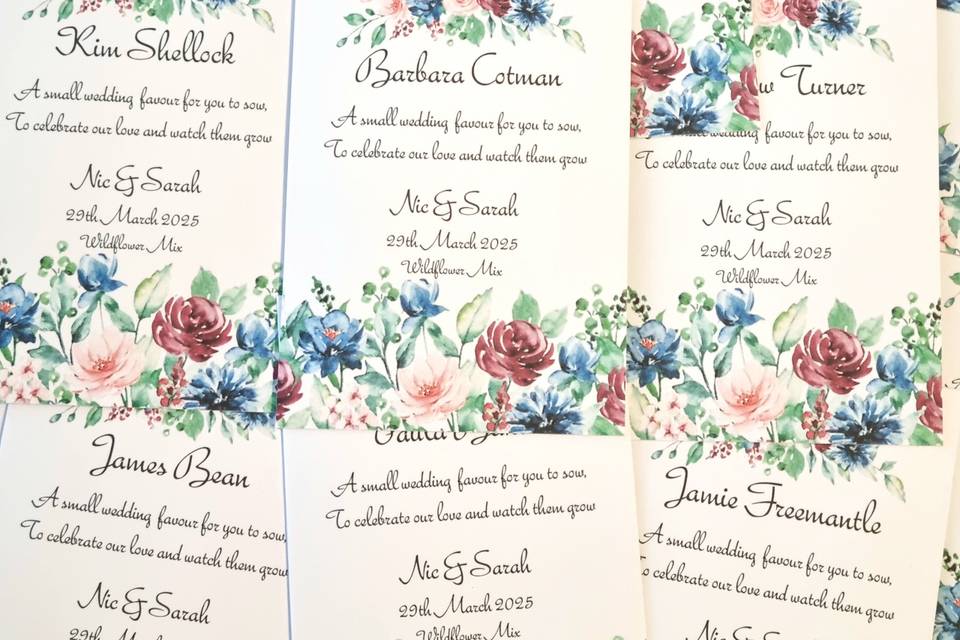 Kim Shellock
A small wedding favour for you to sow,
To celebrate our love and watch them grow
Nic & Sarah
29th March 2025
Wildflower Mix
Barbara Cotman
A small wedding favour for you to sow,
To celebrate our love and watch them grow
Nic & Sarah
29th March 2025
Wildflower Mix
w Turner
wedding favour for you to sow,
To celebrate our love and watch them grow
Nic & Sarah
29th March 2025
Wildflower Mix
James Bean
A small wedding favour for you to sow,
To celebrate our love and watch them grow
Nic & Sarah
29th March 2025
A small wedding favour for you to sow,
To celebrate our love and watch them grow
Nic & Sarah
29th March 2025
Wildflower Mix
Jamie Freemantle
A small wedding favour for you to sow,
To celebrate our love and watch them grow
Nic & Sarah